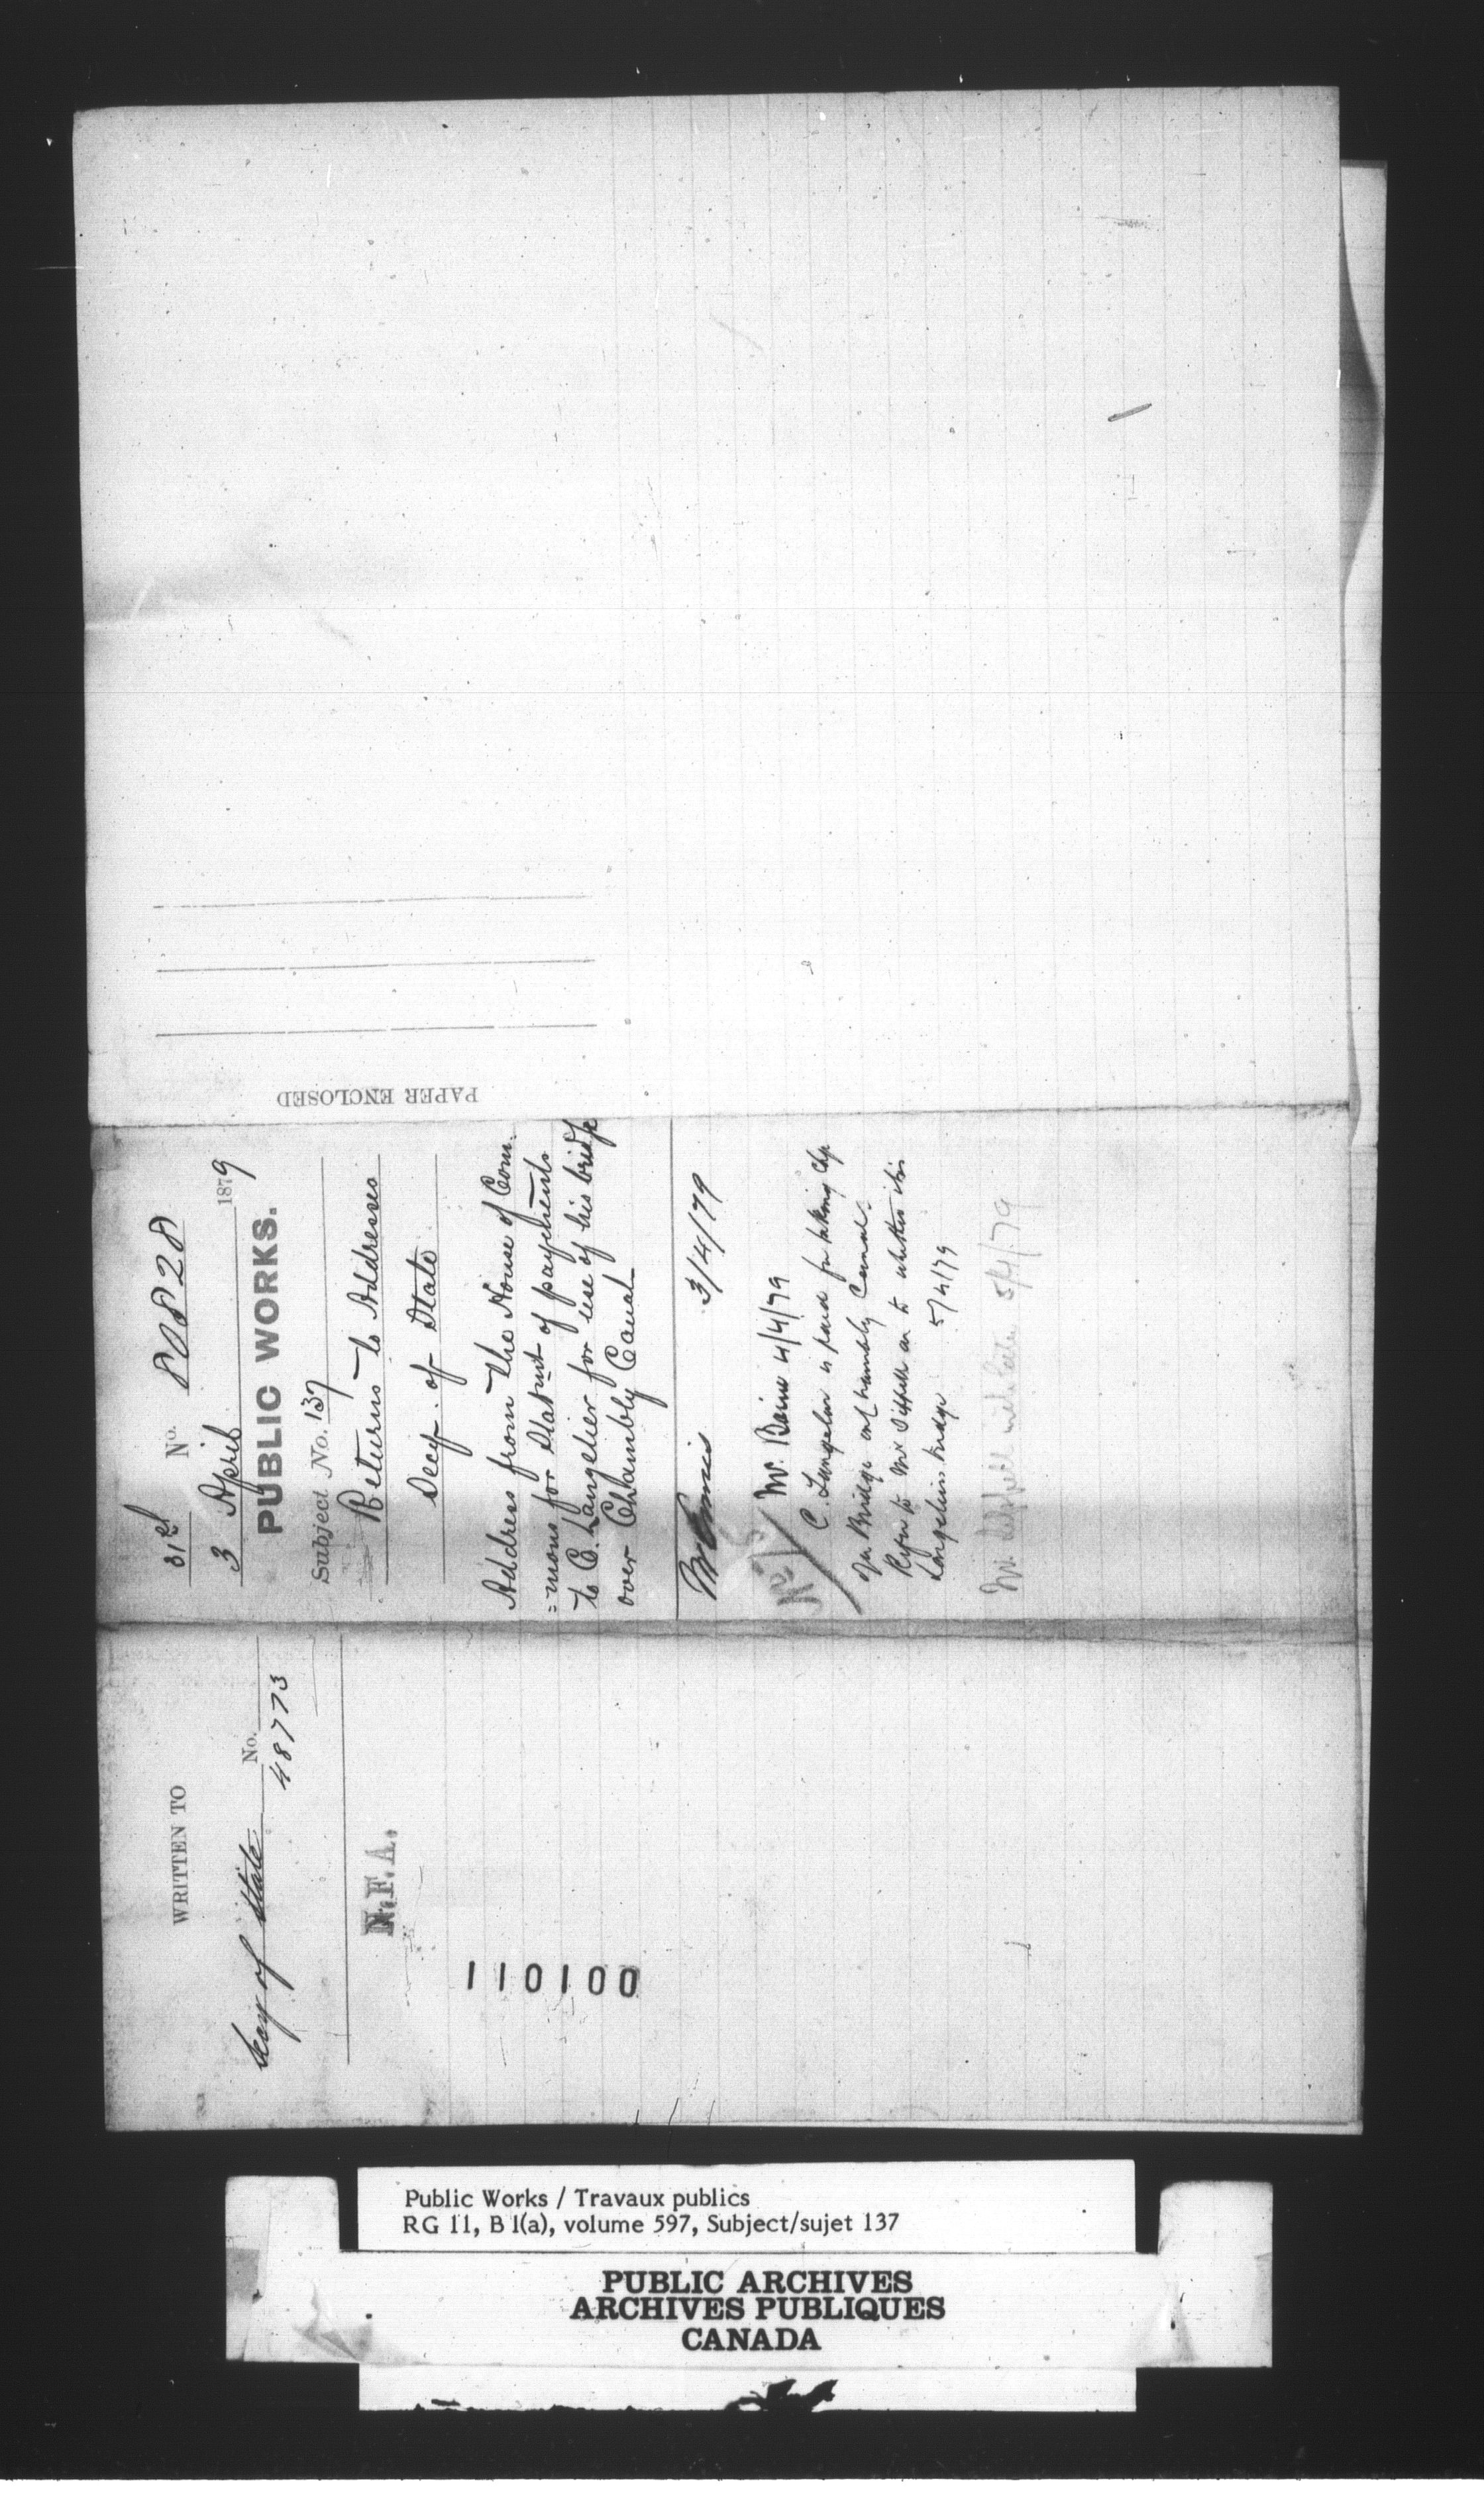 WRITTEN TO
Secy of State No.
48773
N.F.A.
110100
31st No. 80828
3 April 1879
PUBLIC WORKS.
Subject No. 137
Returns to Addresses
Secy. of State
Address from the House of Com:
=mons for Statmt of payments
to C. Langelier for use of his bridge
over Chambly Canal
3/4/79
Mr. Bain 4/4/79
C. Langelier is paid for taking chge
of a Bridge on Chambly Canal.
Refer to Mr as to whether this
Langeliers bridge 5/4/79
Mr. 5/4/79
PAPER ENCLOSED
Public Works / Travaux publics
RG 11, B 1(a), volume 597, Subject/sujet 137
PUBLIC ARCHIVES
ARCHIVES PUBLIQUES
CANADA